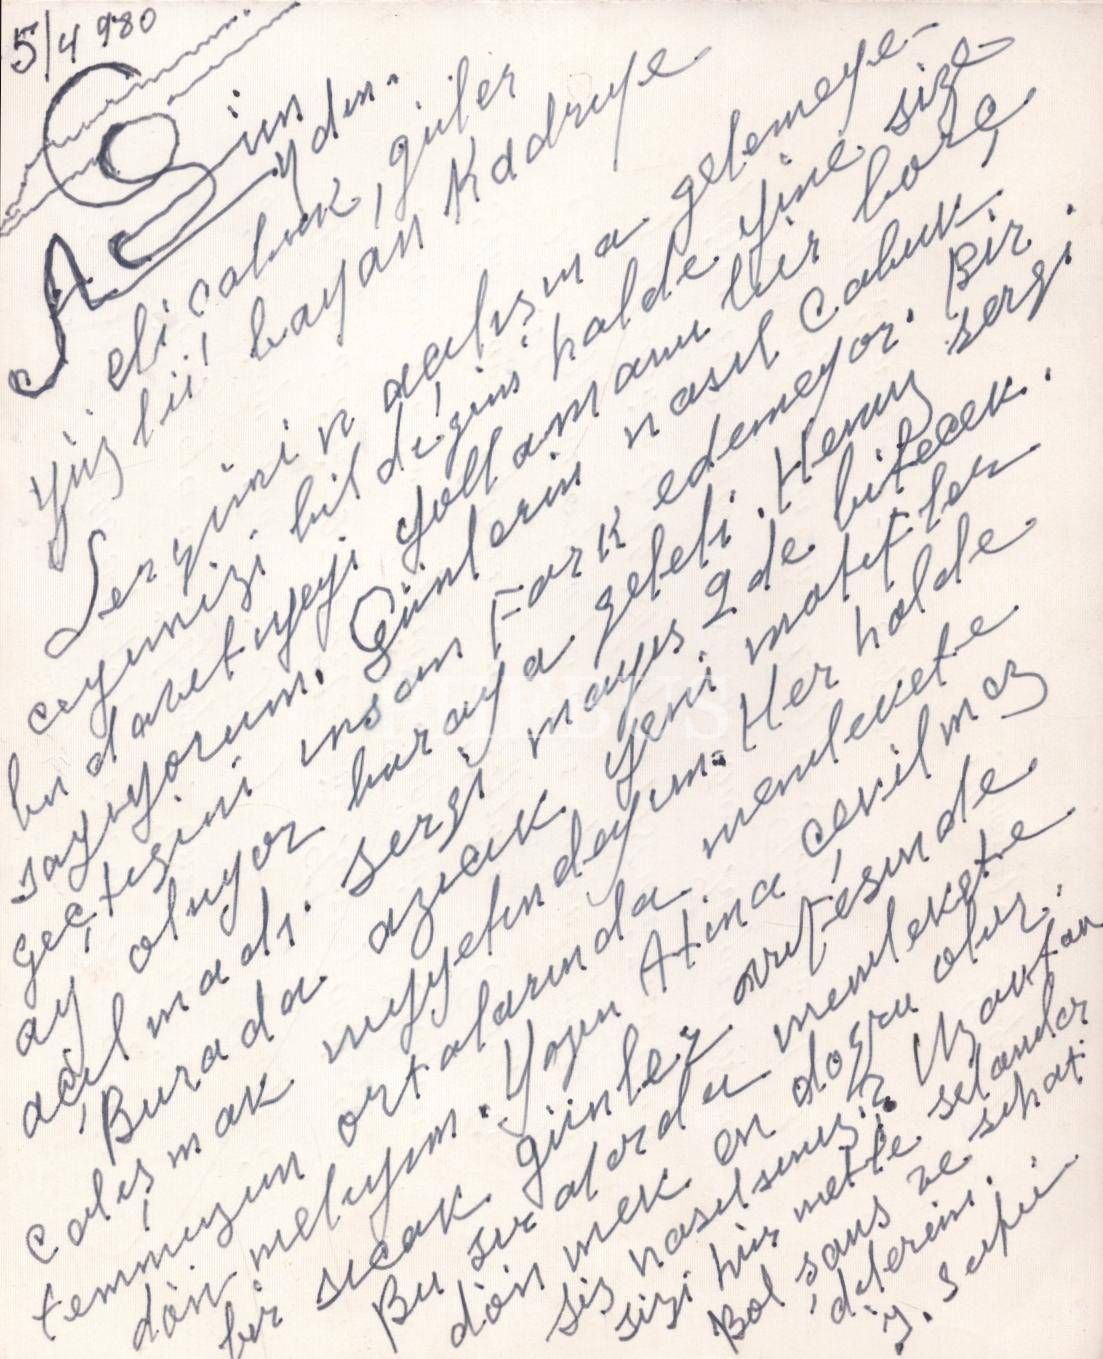 5/4 980
Gün
Aydın.
eli çabuk, güler
yüzlü, bayan Kadriye
Serginin açılışına gelemeye-
ceyinizi bildigim halde yine size
bu davetiyeyi yollamamı bir borç
sayıyorum. Günlerin nasıl çabuk
geçtigini insan Fark edemeyor. Bir
ay oluyor buraya geleli. Henuz sergi
açılmadı. Sergi mayıs 2 de bitecek.
Burada azıcık yeni motifler
calışmak niyyetindeyim. Her halde
temmuzun ortalarında memlekete
dönmeliyim. Yazın Atina çevilmaz
bir sıcak günler
Bu sıralarda memlekete
dönmek en dogru olur.
Siz nasılsınız? Uzaktan
sizi hürmetle selamlar
Bol şans ve sıhati
dilerim.